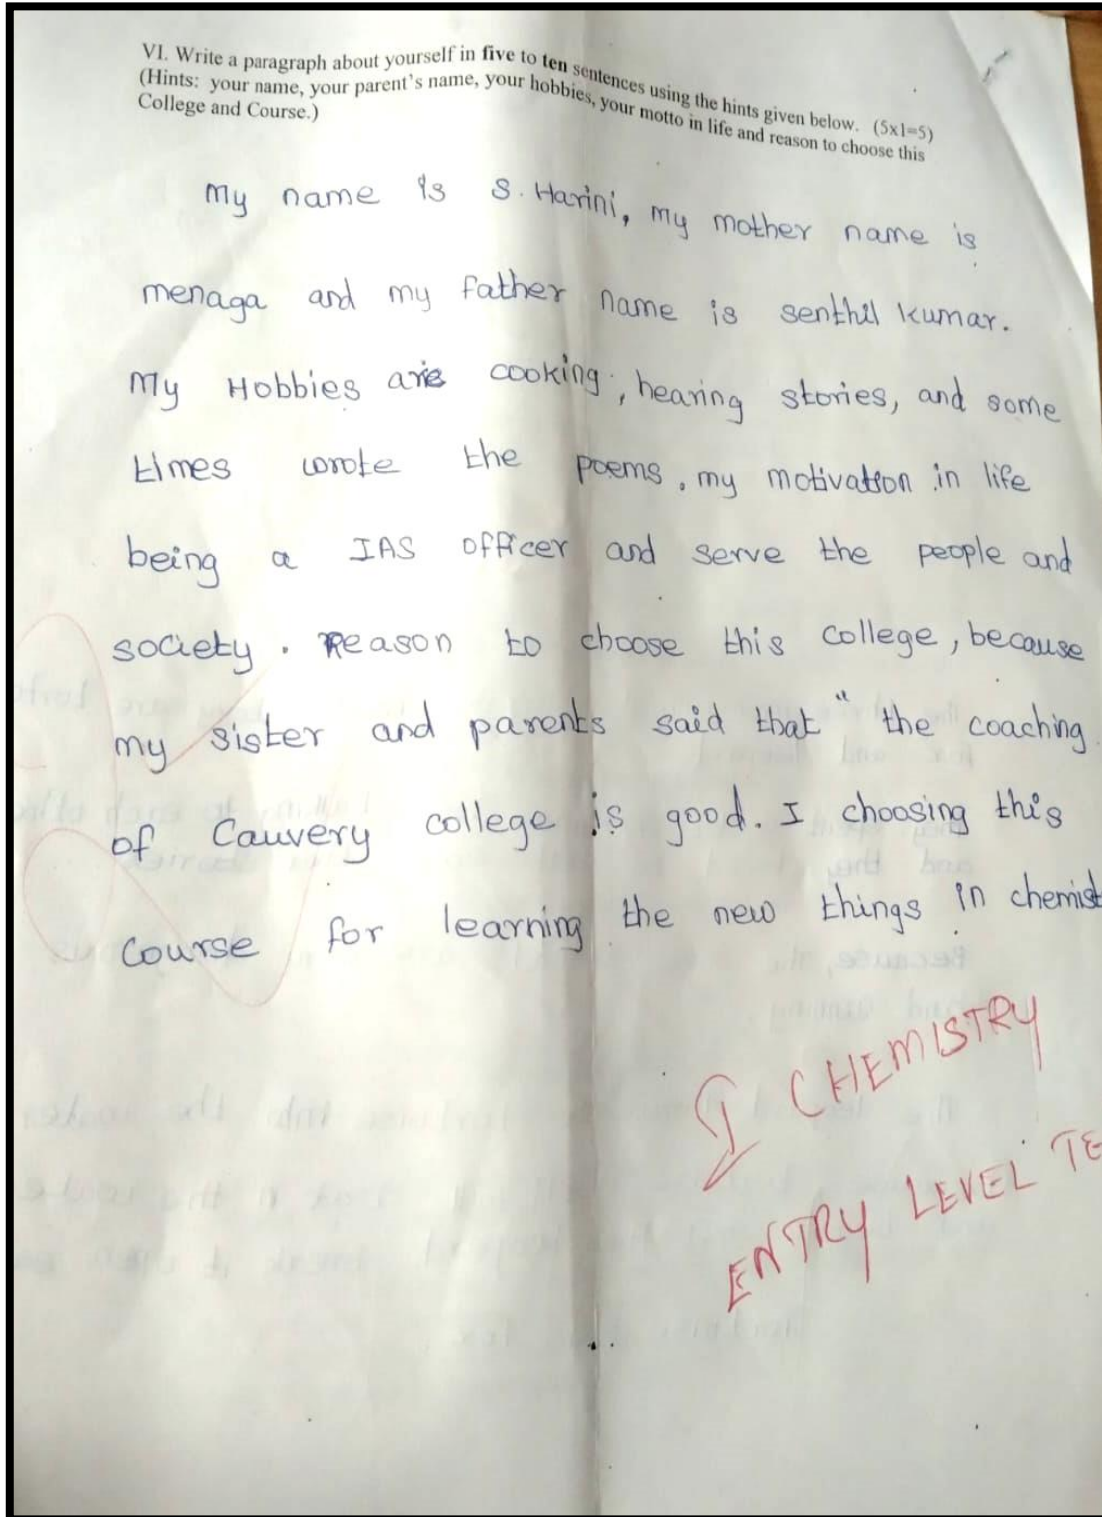 VI. Write a paragraph about yourself in five to ten sentences using the hints given below. (5x1=5)
(Hints: your name, your parent's name, your hobbies, your motto in life and reason to choose this
College and Course.)
My name is S. Harini, my mother name is
menaga and my father name is senthil kumar.
My Hobbies are cooking, hearing stories, and some
times wrote the poems, my motivation in life
being a IAS officer and serve the people and
society. Reason to choose this college, because
my sister and parents said that "the coaching
of Cauvery college is good. I choosing this
course for learning the new things in chemist
I CHEMISTRY
ENTRY LEVEL TE